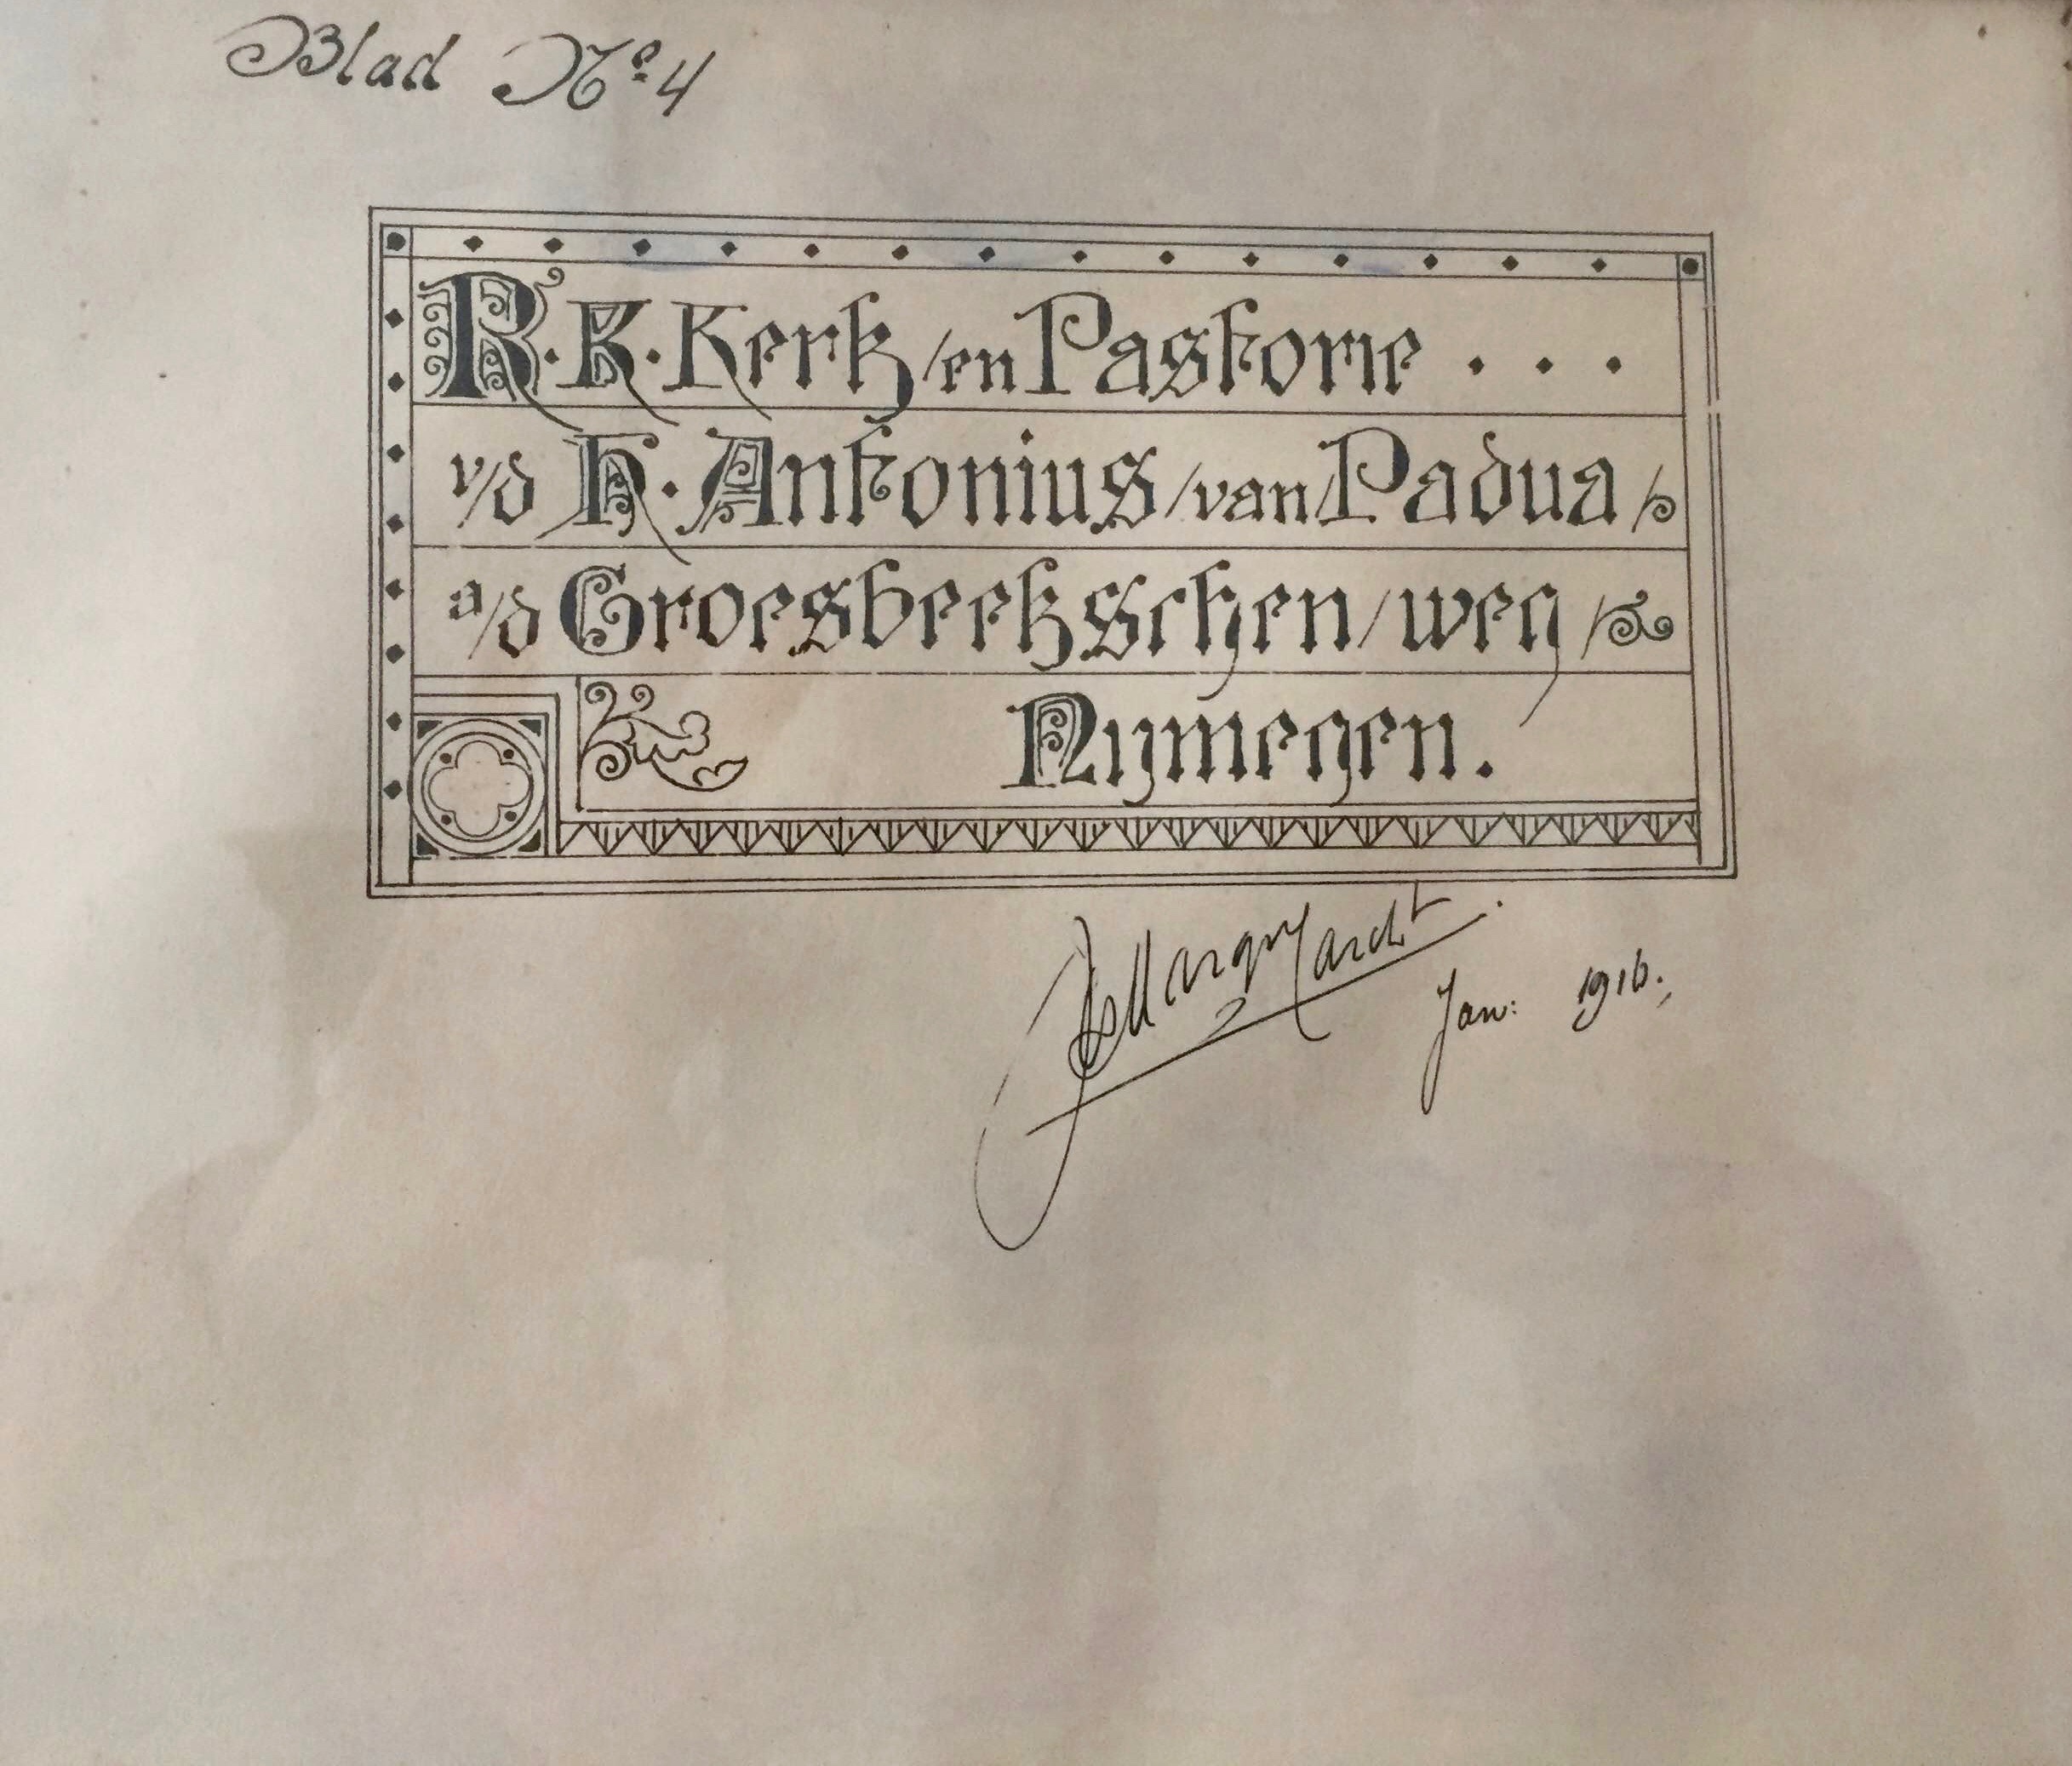 Blad No. 4
R. K. Kerk / en Pastorie . . .
v/d H. Antonius / van / Padua /
a/d Groesbeekschen / weg /
Nijmegen.
Jan: 1916.